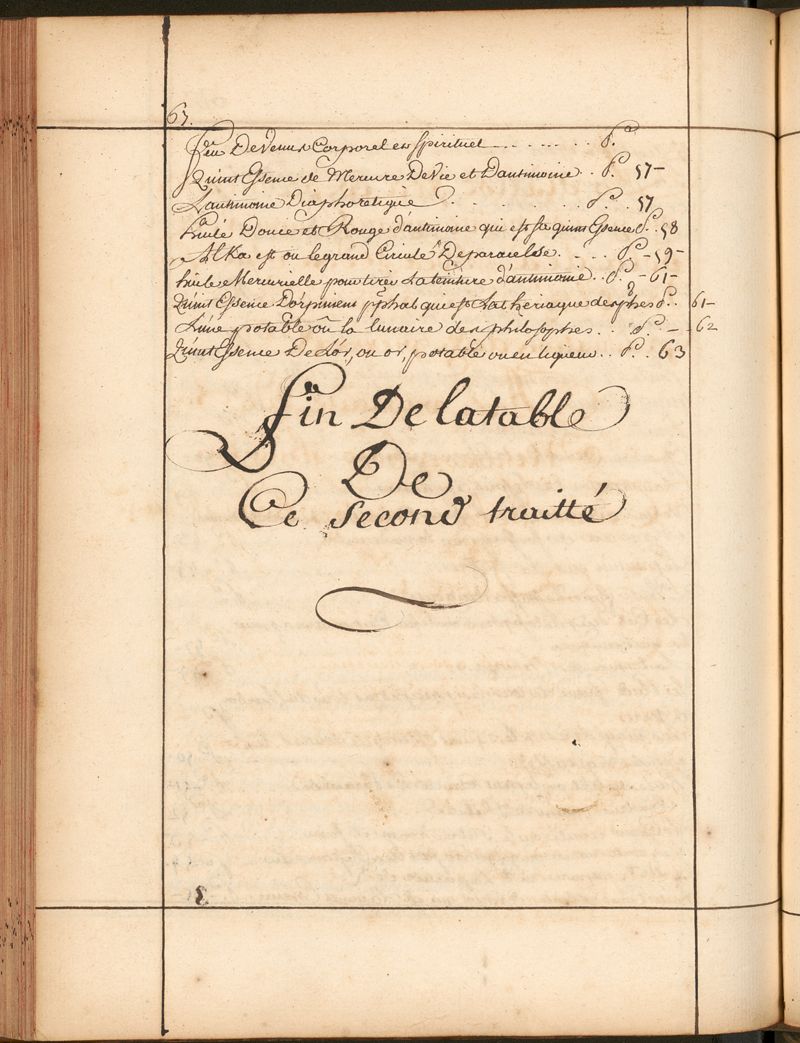 67.
feu De Venus Corporel et spirituel . . . . . . . . P.
Quint Essence de Mercure De Vie et Dantimoine . . P. 57 -
Lantimoine Diaphoretique . . . . . . . P. . 57
huile Douce et Rouge d'antimoine qui est sa quint Essence P. . 58
Alkaest ou le grand Circulé De paracelse . . . . P. - 59 -
huile Mercurielle pour tirer La teinture d'antimoine . . P. - 61 -
Quint Essence Dorpiment pphal qui est La theriaque des phes P. . 61 -
Lune potable ou la lunaire des philosophes . . P. - - 62
Quint Essence De Lor, ou or, potable ou en liqueur . . P. . 63
fin De la table
De
Ce second traitté